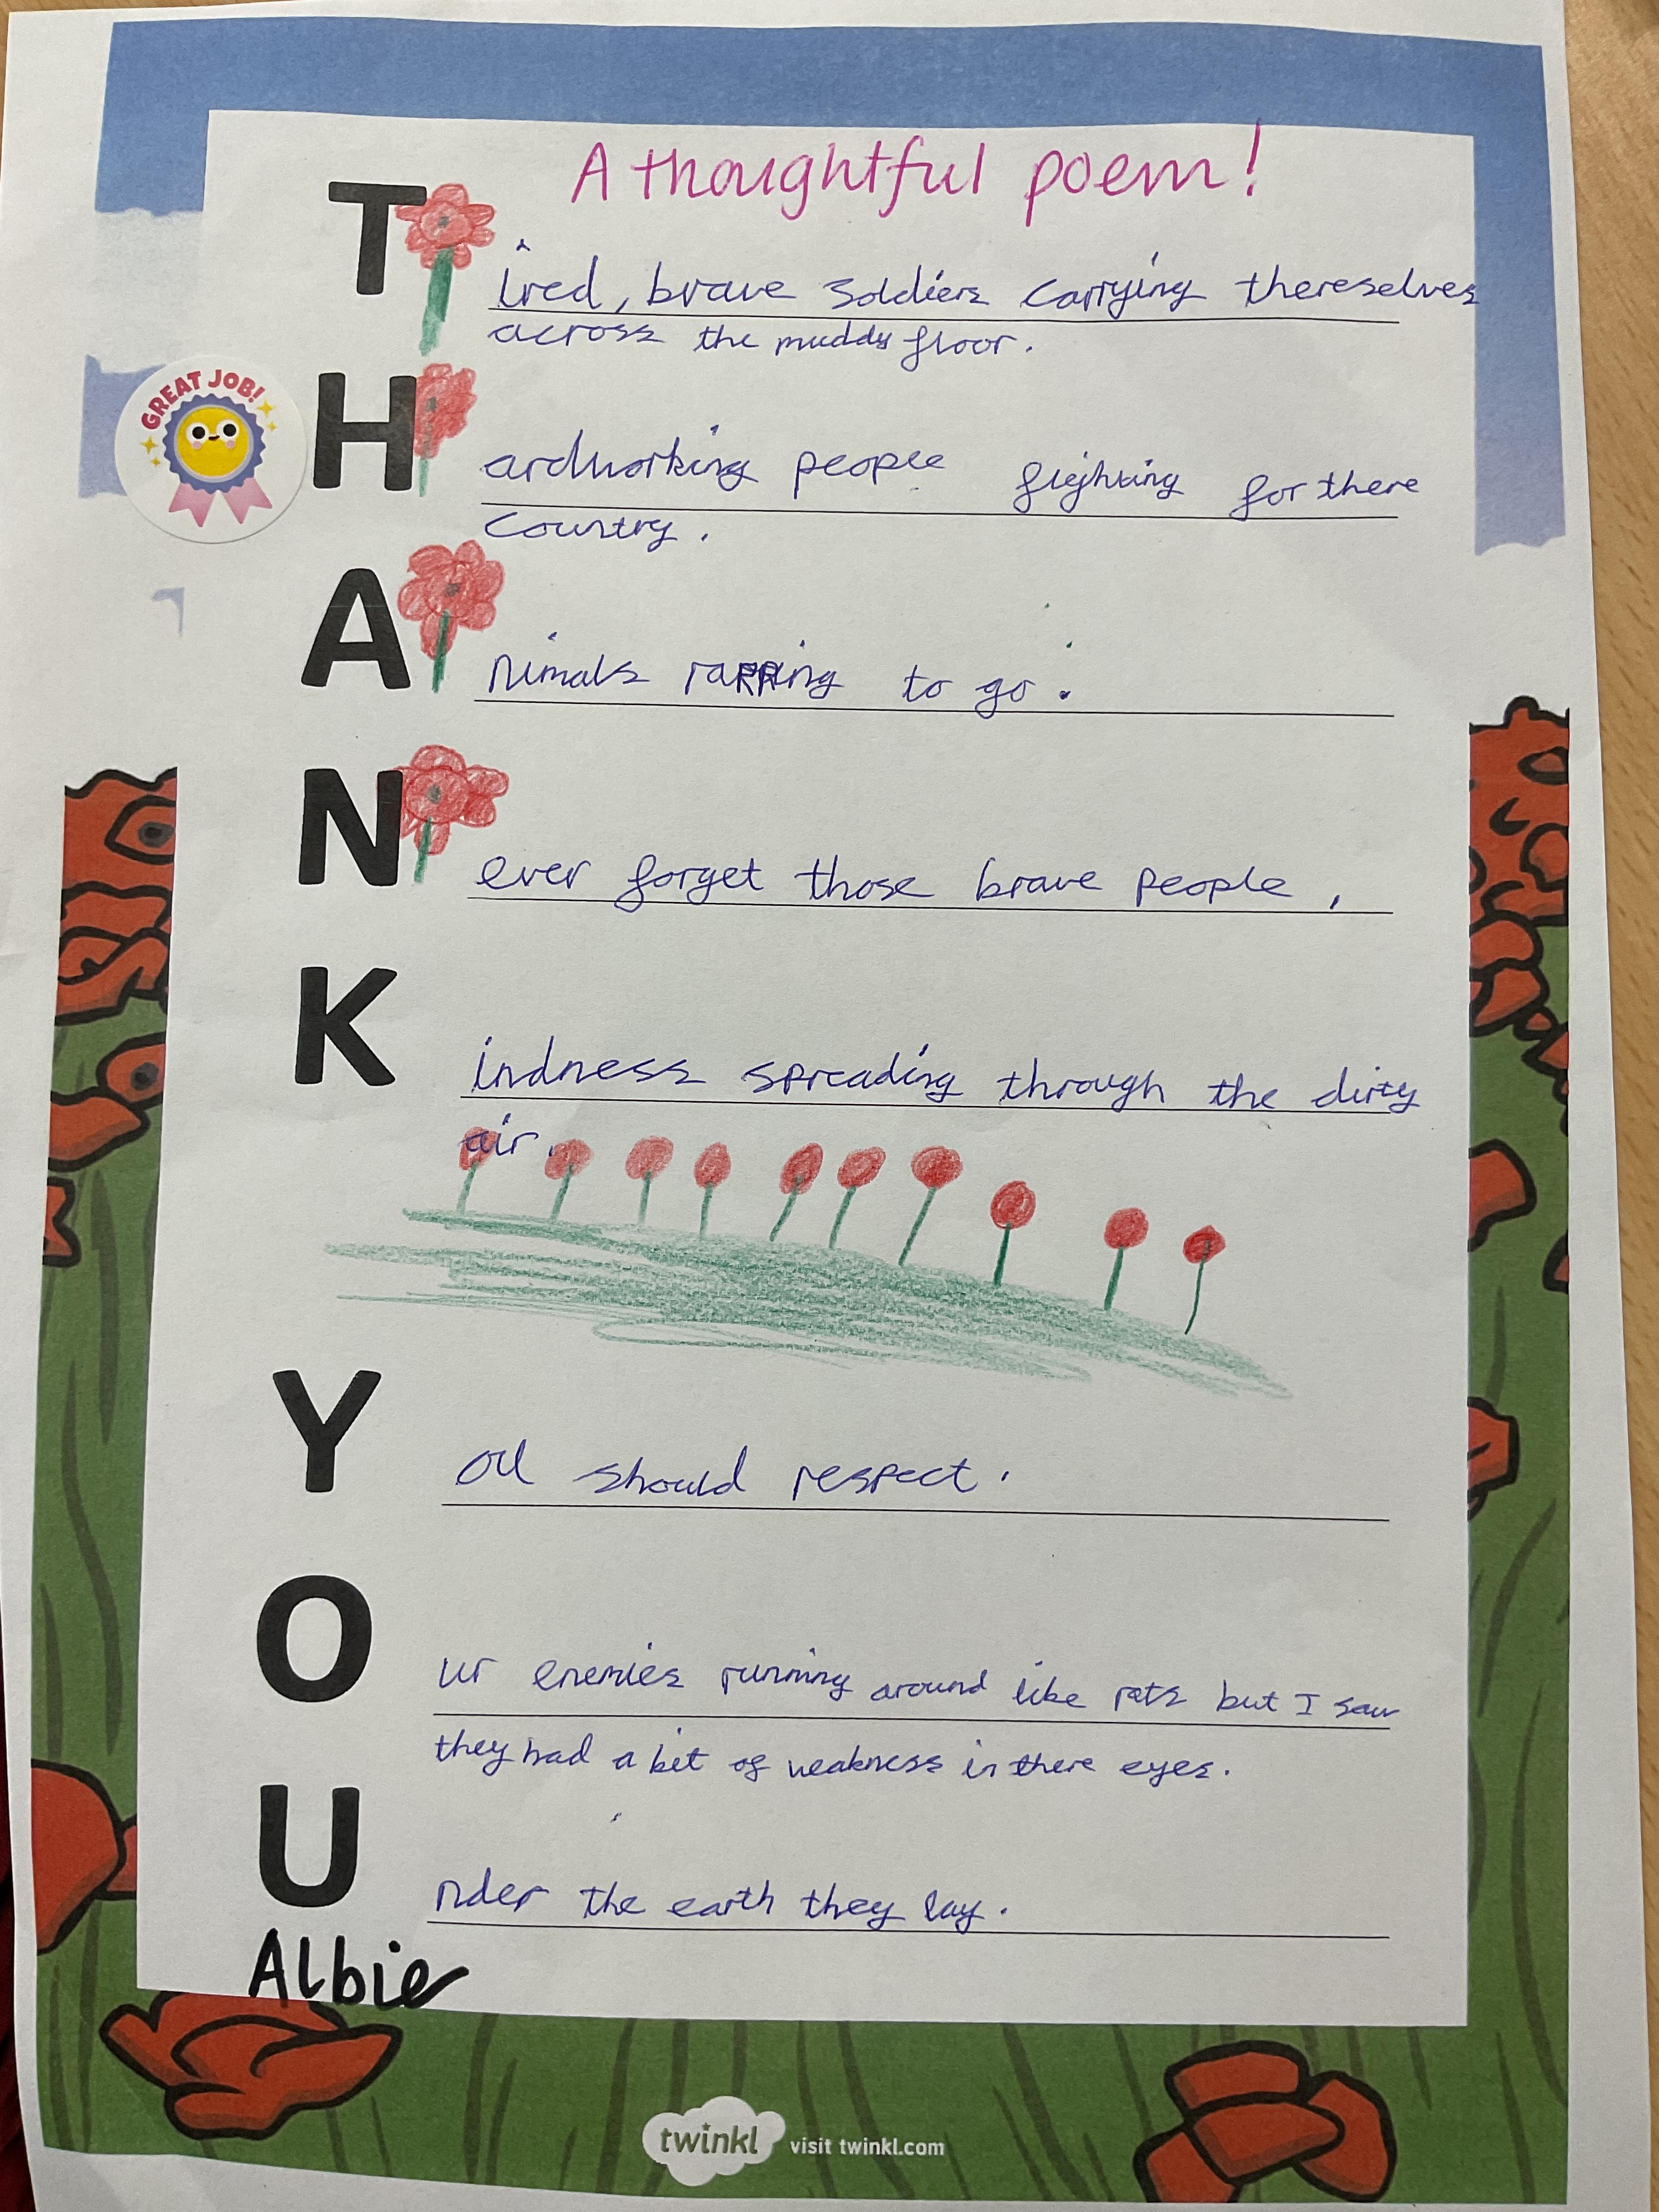 A thoughtful poem!
Tired, brave soldiers carrying thereselves
across the muddy floor.
GREAT JOB!
Hardworking people fighting for there
country.
Animals rapping to go.
Never forget those brave people,
Kindness spreading through the dirty
air.
You should respect.
Our enemies running around like rats but I saw
they had a bit of weakness in there eyes.
Under the earth they lay.
Albie
twinkl visit twinkl.com